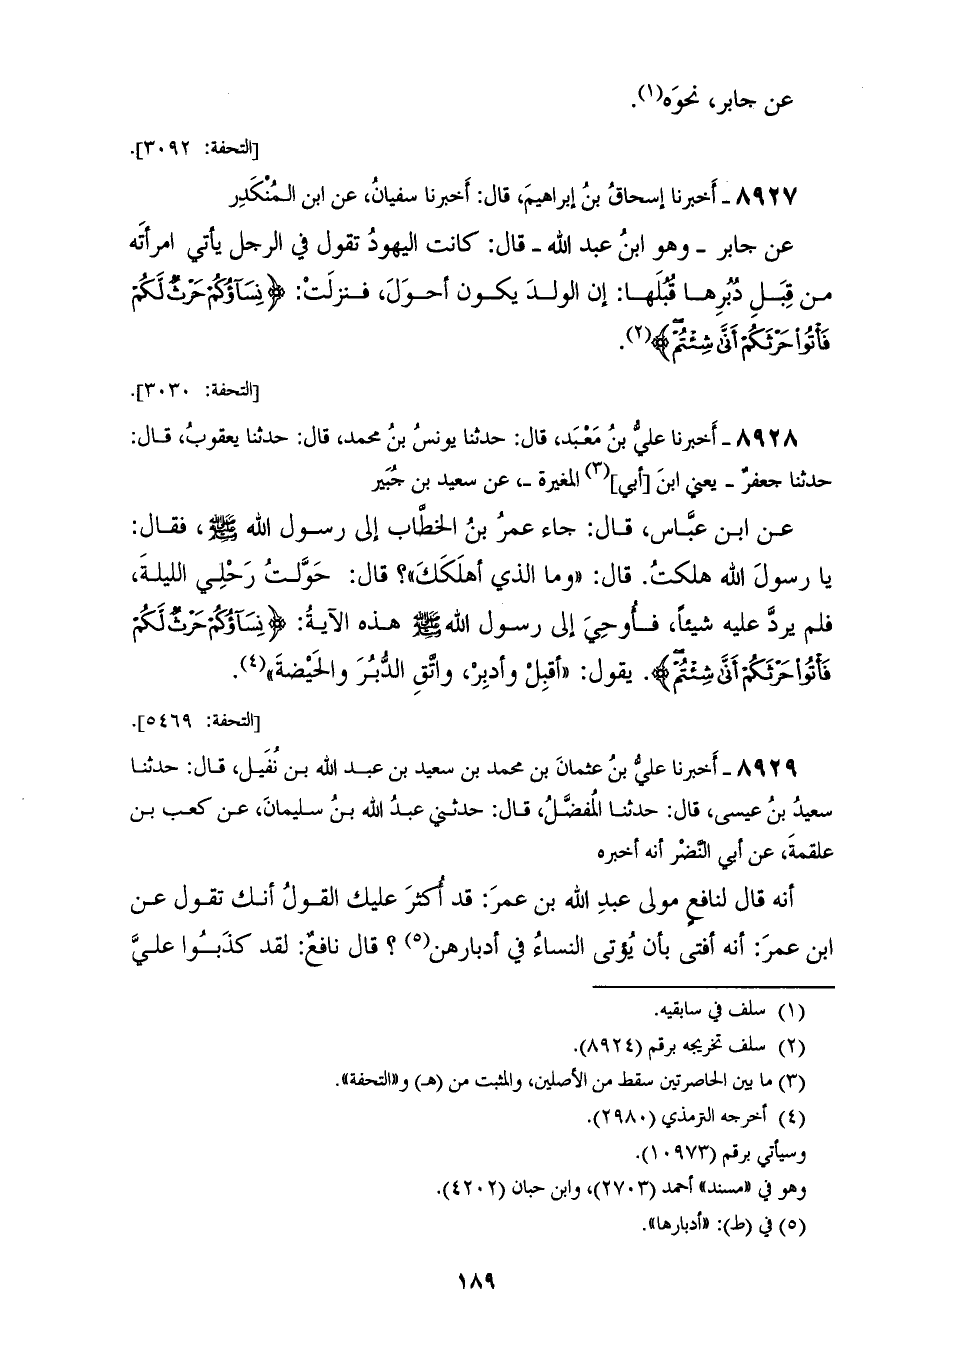 عن جابر، نحوَه(١).
[التحفة: ٣٠٩٢].
٨٩٢٧ ـ أَخبرنا إسحاقُ بنُ إبراهيمَ، قال: أَخبرنا سفيانُ، عن ابن المُنْكَدِر
عن جابر ـ وهو ابنُ عبد الله ـ قال: كانت اليهودُ تقول في الرجل يأتي امرأتَه
من قِبَلِ دُبُرِها قُبُلَها: إن الولدَ يكون أحولَ، فنزلَتْ: ﴿نِسَآؤُكُمْ حَرْثٌ لَّكُمْ
فَأْتُواْ حَرْثَكُمْ أَنَّىٰ شِئْتُمْ﴾(٢).
[التحفة: ٣٠٣٠].
٨٩٢٨ ـ أَخبرنا عليُّ بنُ مَعْبَد، قال: حدثنا يونسُ بنُ محمد، قال: حدثنا يعقوبُ، قال:
حدثنا جعفرٌ ـ يعني ابنَ [أبي](٣) المغيرة ـ، عن سعيد بن جُبَير
عن ابن عبَّاس، قال: جاء عمرُ بنُ الخطَّاب إلى رسول الله ﷺ، فقال:
يا رسولَ الله هلكتُ. قال: «وما الذي أهلَكَكَ»؟ قال: حَوَّلتُ رَحْلِي الليلةَ،
فلم يردَّ عليه شيئاً، فأُوحِيَ إلى رسول الله ﷺ هذه الآيةُ: ﴿نِسَآؤُكُمْ حَرْثٌ لَّكُمْ
فَأْتُواْ حَرْثَكُمْ أَنَّىٰ شِئْتُمْ﴾. يقول: «أقبِلْ وأدبِرْ، واتَّقِ الدُّبُرَ والحَيْضةَ»(٤).
[التحفة: ٥٤٦٩].
٨٩٢٩ ـ أَخبرنا عليُّ بنُ عثمانَ بن محمد بن سعيد بن عبد الله بن نُفَيل، قال: حدثنا
سعيدُ بنُ عيسى، قال: حدثنا المُفضَّلُ، قال: حدثني عبدُ الله بنُ سليمانَ، عن كعب بن
علقمةَ، عن أبي النَّضْر أنه أخبره
أنه قال لنافعٍ مولى عبدِ الله بن عمرَ: قد أُكثرَ عليك القولُ أنك تقول عن
ابن عمرَ: أنه أفتى بأن يُؤتى النساءُ في أدبارهن(٥)؟ قال نافعٌ: لقد كذَبُوا عليَّ
(١) سلف في سابقيه.
(٢) سلف تخريجه برقم (٨٩٢٤).
(٣) ما بين الحاصرتين سقط من الأصلين، والمثبت من (هـ) و«التحفة».
(٤) أخرجه الترمذي (٢٩٨٠).
وسيأتي برقم (١٠٩٧٣).
وهو في «مسند» أحمد (٢٧٠٣)، وابن حبان (٤٢٠٢).
(٥) في (ط): «أدبارها».
١٨٩